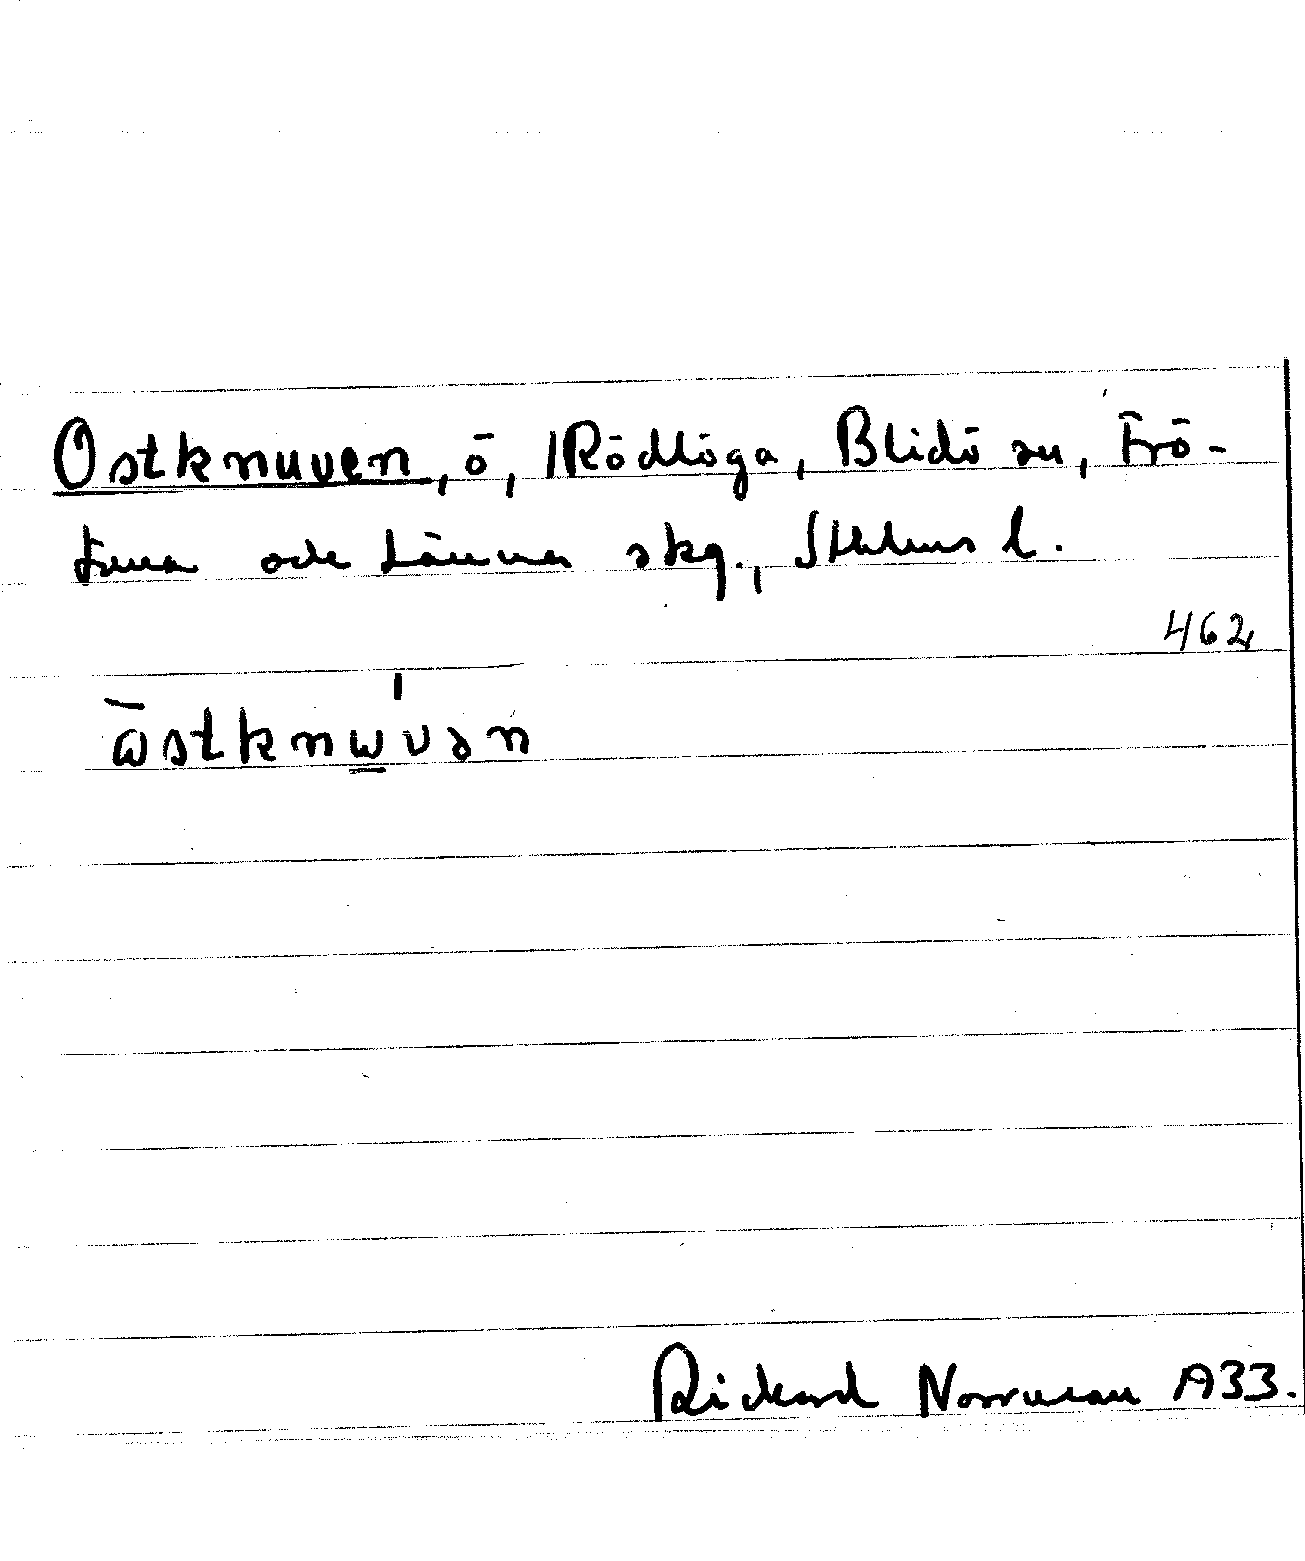 Ostknuven, ö, Rödlöga, Blidö sn, Frö-
tuna och Länna skg., Sthlms l.
462
ɷ̄stknɯ̲́vən
Rickard Norrman A33.